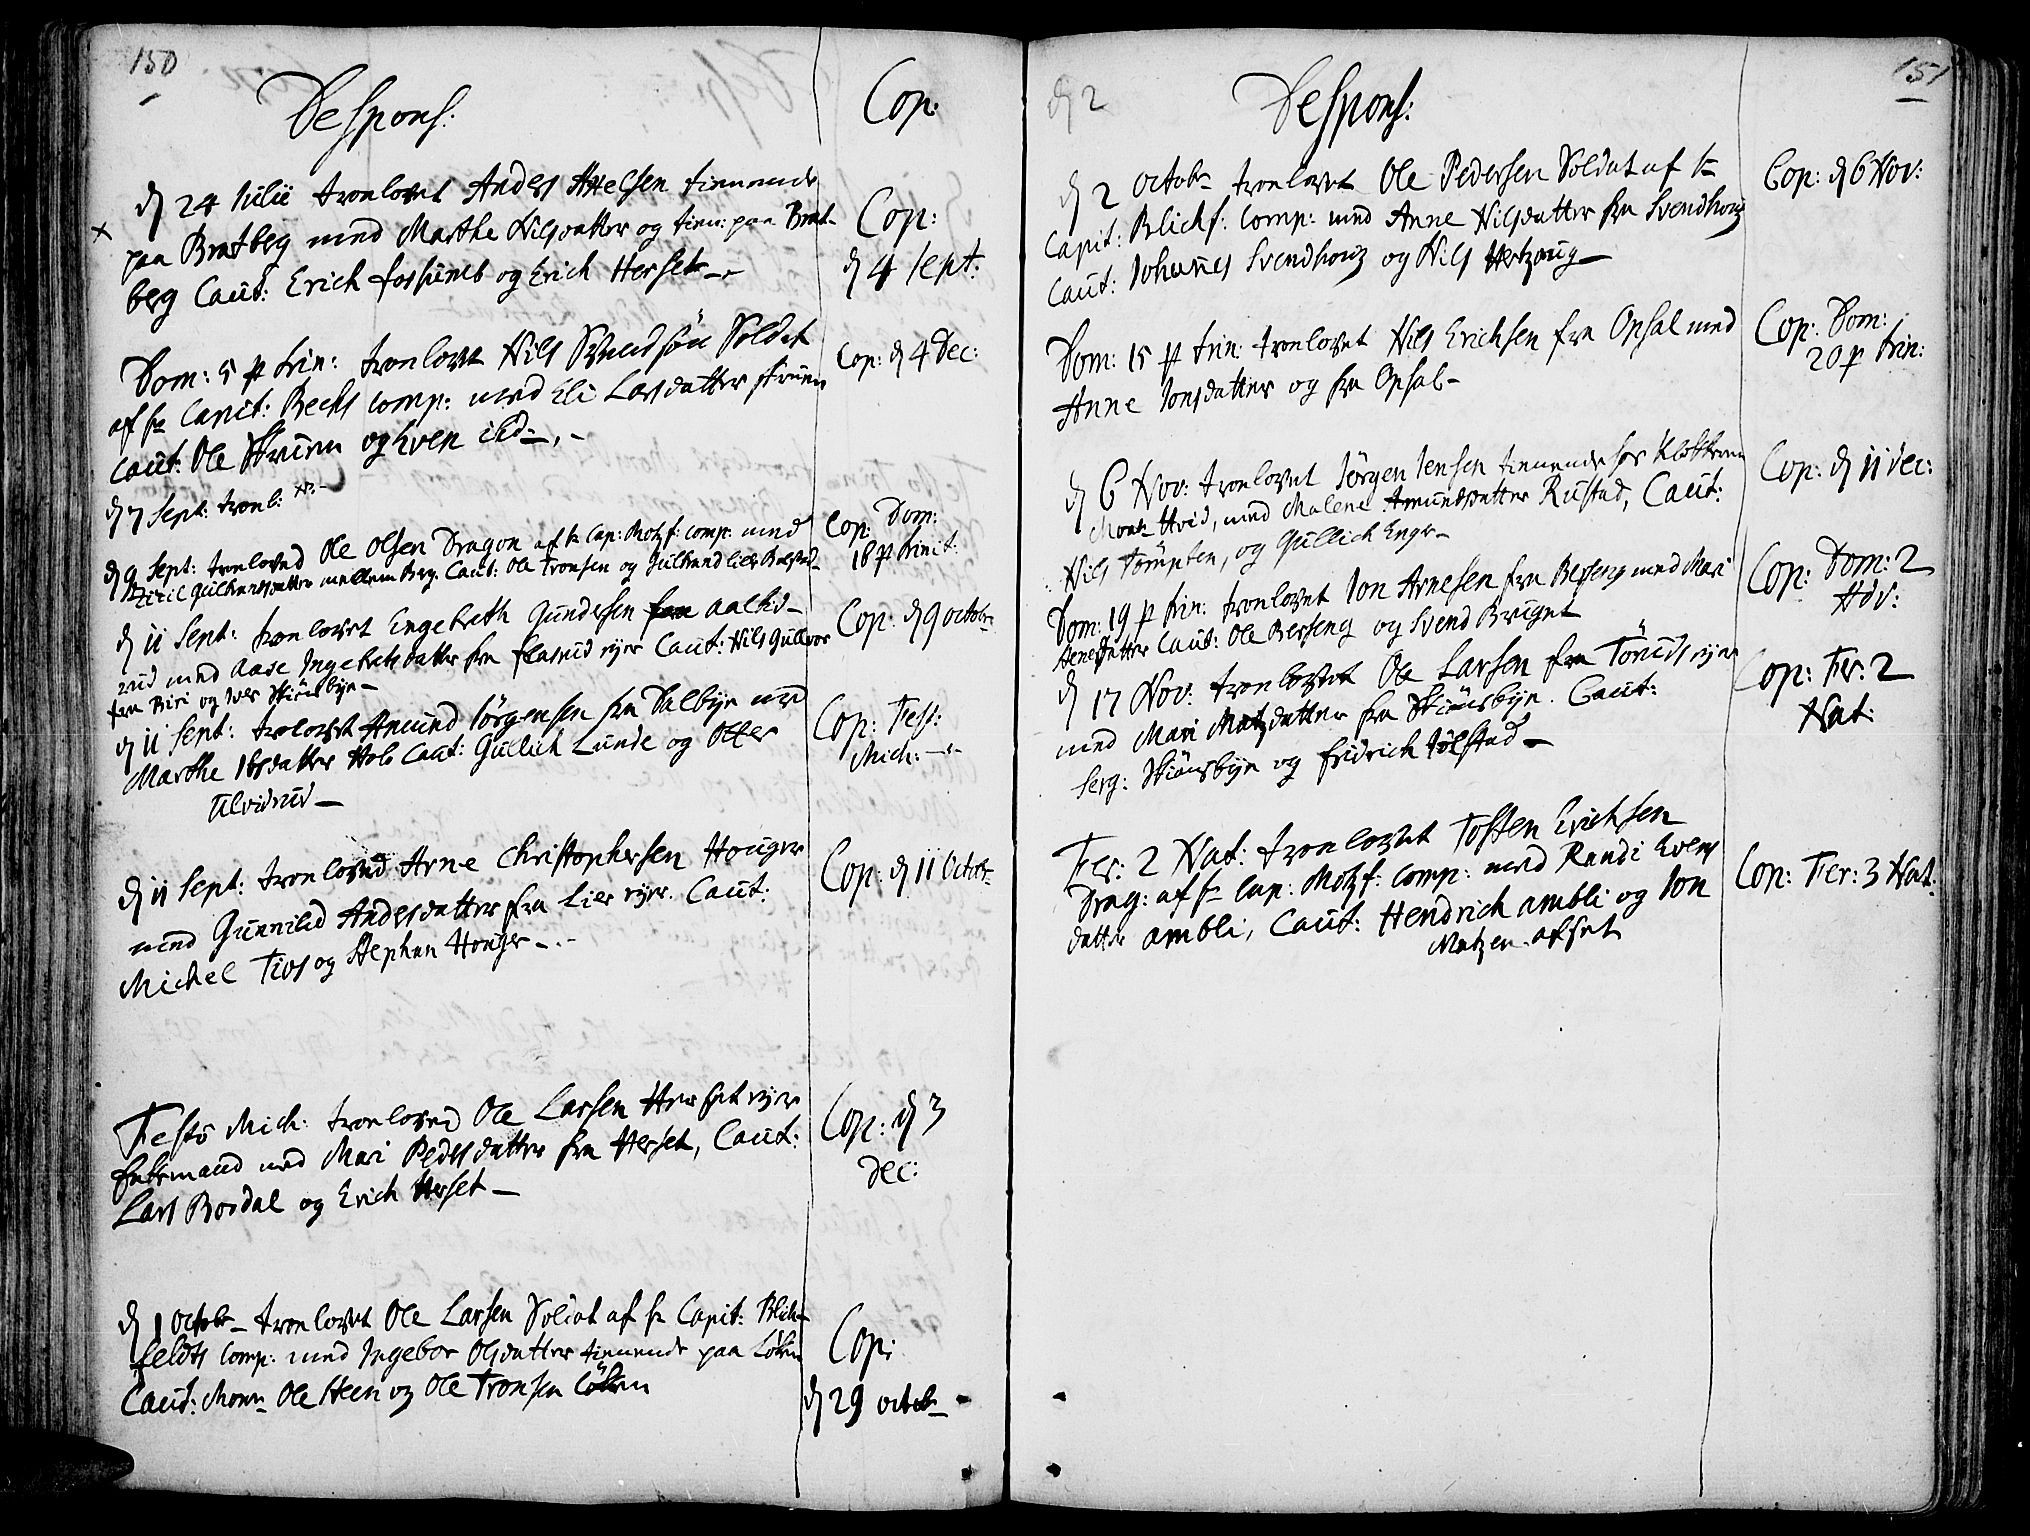 150
Despons:
Cop:
d 24 Julii tronlovet Anders Axelsen tienende
x paa Bratberg med Marthe Nilsdatter og tien: paa Brat-
berg Caut: Erich fossumb og Erich Herset
Cop:
d 4 Sept:
Dom: 5 p trin: tronlovet Nils Svendsøn Soldat
af hr Capit: Bechs Comp: med Eli Larsdatter
Caut: Ole og Even ibid
Cop: d 4 Dec:
d 7 Sept: tronl:
d 9 Sept: tronloved Ole Olsen Dragon af hr Cap: Motzf: Comp: med
Zicil Gulbrandsdatter mellem Berg. Caut: Ole Tronsen og Gulbrand
Cop: Dom:
18 p trinit:
d 11 Sept: tronlovet Engebreth Gundersen fra Aalkid-
rud med Aase Ingebretsdatter fra eier Caut: Nils
fra Biri og Iver Skiønsbye
Cop: d 9 octobr
d 11 Sept: trolovet Amund Jørgensen fra Dalbye med
Marthe Ibsdatter Hob Caut: Gullich Lunde og Otter
Ulvidrud
Cop: Fest:
Mich:
d 11 Sept: tronloved Arne Christophersen Houger
med Gunnild Andersdatter fra Lier eier. Caut:
Michel Tios og Stephan Houger
Cop: d 11 Octobr
Festo Mich: tronloved Ole Larsen Herset eier
Enkemand med Mari Pedersdatter fra Herset, Caut:
Lars Bordal og Erich Herset
Cop: d 3
Dec:
d 1 Octobr tronlovet Ole Larsen Soldat af hr Capit: Blich-
feldts Comp: med Ingebor Olsdatter tienende paa Løken
Caut: Ole Steen og Ole Tronsen Løken
Cop:
d 29 octobr
151
d 2
Despons:
d 2 Octobr tronlovet Ole Pedersen Soldat af hr
Capit: Blichf: Comp: med Anne Nilsdatter fra Svendhoug
Caut: Johannes Svendhoug og Nils Hertzoug
Cop: d 6 Nov:
Dom: 15 p trin: tronlovet Nils Erichsen fra Opsal med
Anne Jonsdatter og fra Opsal
Cop: Dom:
20 p trin:
d 6 Nov: tronlovet Jørgen Jensen tienende hos Klokkeren
Hvid, med Malene Amundsdatter Rustad, Caut:
Nils Tømpten, og Gullich Enger
Cop: d 11 dec:
Dom: 19 p trin: tronlovet Jon Arnesen fra Berseng med Mari
Arnesdatter Caut: Ole Berseng og Svend
Cop: Dom: 2
Adv:
d 17 Nov: tronlovet Ole Larsen fra eier
med Mari Matzdatter fra Skiønsbye. Caut:
Serg: Skiønsbye og fridrich Jølstad
Cop: Fer: 2
Nat:
Fer: 2 Nat: tronlovet Tosten Erichsen
Drag: af hr Cap: Motzf: Comp: med Randi Evens
datter ambli, Caut: Hendrich ambli og Jon
Matzen afset
Cop: Fer: 3 Nat: